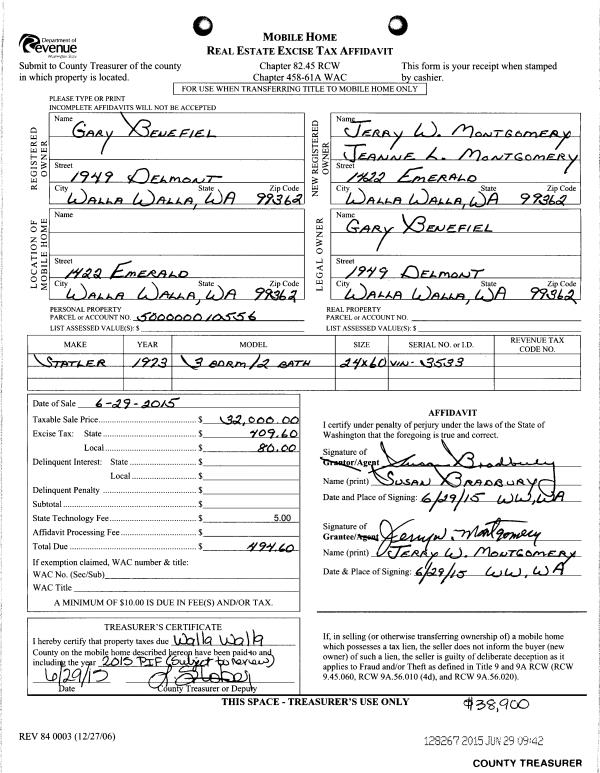 Department of
Revenue
Washington State
MOBILE HOME
REAL ESTATE EXCISE TAX AFFIDAVIT
Submit to County Treasurer of the county
in which property is located.
Chapter 82.45 RCW
Chapter 458-61A WAC
This form is your receipt when stamped
by cashier.
FOR USE WHEN TRANSFERRING TITLE TO MOBILE HOME ONLY
PLEASE TYPE OR PRINT
INCOMPLETE AFFIDAVITS WILL NOT BE ACCEPTED
REGISTERED OWNER
Name
GARY BENEFIEL
Street
1949 DELMONT
City State Zip Code
WALLA WALLA, WA 99362
NEW REGISTERED OWNER
Name
JERRY W. MONTGOMERY
JEANNE L. MONTGOMERY
Street
1422 EMERALD
City State Zip Code
WALLA WALLA, WA 99362
LOCATION OF MOBILE HOME
Name
Street
1422 EMERALD
City State Zip Code
WALLA WALLA, WA 99362
LEGAL OWNER
Name
GARY BENEFIEL
Street
1949 DELMONT
City State Zip Code
WALLA WALLA, WA 99362
PERSONAL PROPERTY
PARCEL or ACCOUNT NO. 500000010556
LIST ASSESSED VALUE(S): $
REAL PROPERTY
PARCEL or ACCOUNT NO.
LIST ASSESSED VALUE(S): $
MAKE YEAR MODEL SIZE SERIAL NO. or I.D. REVENUE TAX CODE NO.
STATLER 1973 3 BDRM/2 BATH 24X60 VIN-3533
Date of Sale 6-29-2015
Taxable Sale Price $ 32,000.00
Excise Tax: State $ 409.60
Local $ 80.00
Delinquent Interest: State $
Local $
Delinquent Penalty $
Subtotal $
State Technology Fee $ 5.00
Affidavit Processing Fee $
Total Due $ 494.60
If exemption claimed, WAC number & title:
WAC No. (Sec/Sub)
WAC Title
A MINIMUM OF $10.00 IS DUE IN FEE(S) AND/OR TAX.
AFFIDAVIT
I certify under penalty of perjury under the laws of the State of
Washington that the foregoing is true and correct.
Signature of
Grantor/Agent Susan Bradbury
Name (print) SUSAN BRADBURY
Date and Place of Signing: 6/29/15 WW, WA
Signature of
Grantee/Agent Jerry W. Montgomery
Name (print) JERRY W. MONTGOMERY
Date & Place of Signing: 6/29/15 WW, WA
TREASURER'S CERTIFICATE
I hereby certify that property taxes due Walla Walla
County on the mobile home described hereon have been paid to and
including the year 2015 PIF (Subject to review)
6/29/15
Date County Treasurer or Deputy
If, in selling (or otherwise transferring ownership of) a mobile home
which possesses a tax lien, the seller does not inform the buyer (and new
owner) of such a lien, the seller is guilty of deliberate deception as it
applies to Fraud and/or Theft as defined in Title 9 and 9A RCW (RCW
9.45.060, RCW 9A.56.010 (4d), and RCW 9A.56.020).
THIS SPACE - TREASURER'S USE ONLY
$38,900
REV 84 0003 (12/27/06)
128267 2015 JUN 29 09:42
COUNTY TREASURER